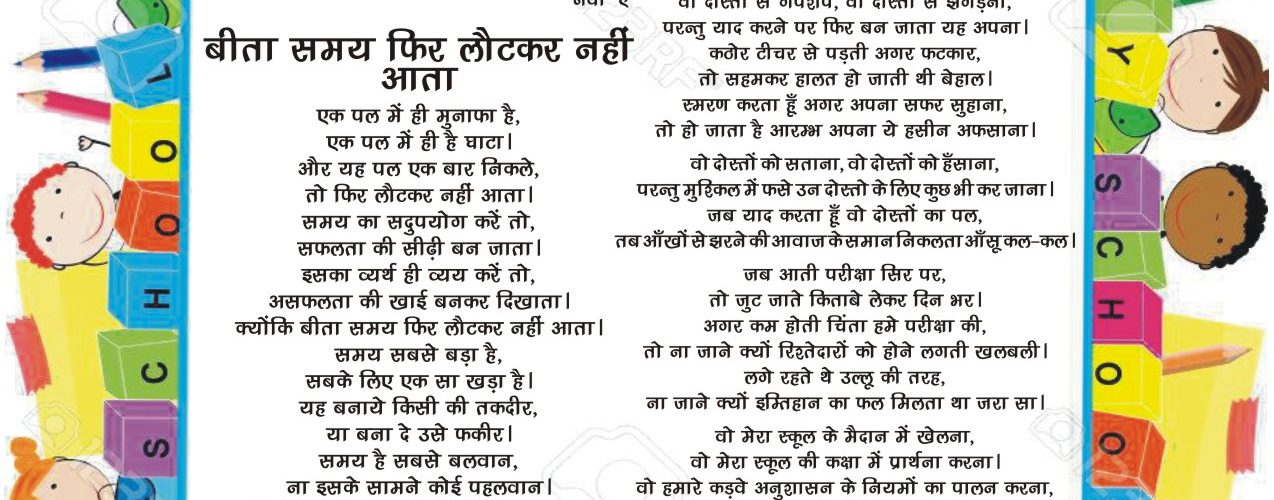 बीता समय फिर लौटकर नहीं
आता
एक पल में ही मुनाफा है,
एक पल में ही है घाटा।
और यह पल एक बार निकले,
तो फिर लौटकर नहीं आता।
समय का सदुपयोग करें तो,
सफलता की सीढ़ी बन जाता।
इसका व्यर्थ ही व्यय करें तो,
असफलता की खाई बनकर दिखाता।
क्योंकि बीता समय फिर लौटकर नहीं आता।
समय सबसे बड़ा है,
सबके लिए एक सा खड़ा है।
यह बनाये किसी की तकदीर,
या बना दे उसे फकीर।
समय है सबसे बलवान,
ना इसके सामने कोई पहलवान।
वो दोस्तो से गपशप, वो दोस्तो से झगड़ना,
परन्तु याद करने पर फिर बन जाता यह अपना।
कठोर टीचर से पड़ती अगर फटकार,
तो सहमकर हालत हो जाती थी बेहाल।
स्मरण करता हूँ अगर अपना सफर सुहाना,
तो हो जाता है आरम्भ अपना ये हसीन अफसाना।
वो दोस्तों को सताना, वो दोस्तों को हँसाना,
परन्तु मुश्किल में फसे उन दोस्तो के लिए कुछ भी कर जाना।
जब याद करता हूँ वो दोस्तों का पल,
तब आँखों से झरने की आवाज के समान निकलता आँसू कल-कल।
जब आती परीक्षा सिर पर,
तो जुट जाते किताबे लेकर दिन भर।
अगर कम होती चिंता हमे परीक्षा की,
तो ना जाने क्यों रिश्तेदारों को होने लगती खलबली।
लगे रहते थे उल्लू की तरह,
ना जाने क्यों इम्तिहान का फल मिलता था जरा सा।
वो मेरा स्कूल के मैदान में खेलना,
वो मेरा स्कूल की कक्षा में प्रार्थना करना।
वो हमारे कड़वे अनुशासन के नियमों का पालन करना,
S C H O O L
Y
S C H O O